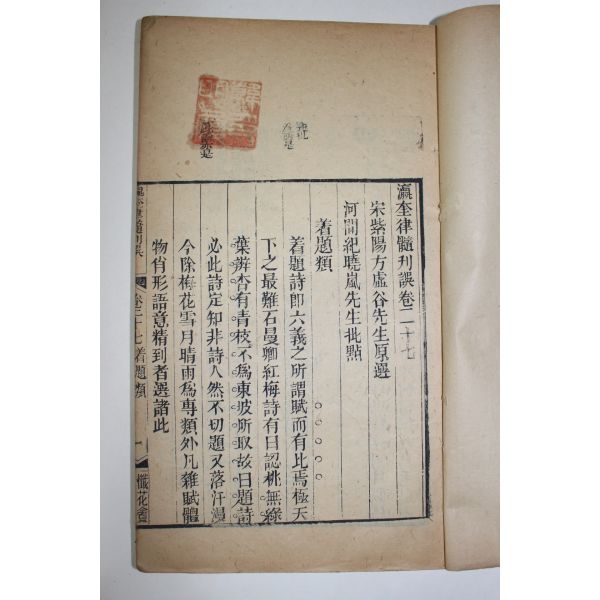 瀛奎律髓刊誤卷二十七
宋紫陽方虛谷先生原選
河間紀曉嵐先生批點
著題類
着題詩卽六義之所謂賦而有比焉極天
下之最難石曼卿紅梅詩有曰認桃無綠
葉辨杏有靑枝不爲東坡所取故曰題詩
必此詩定知非詩人然不切題又落汗漫
今除梅花雪月晴雨爲專類外凡雜賦體
物肖形語意精到者選諸此
瀛奎律髓刊誤
卷二十七着題類
一
懺花盦